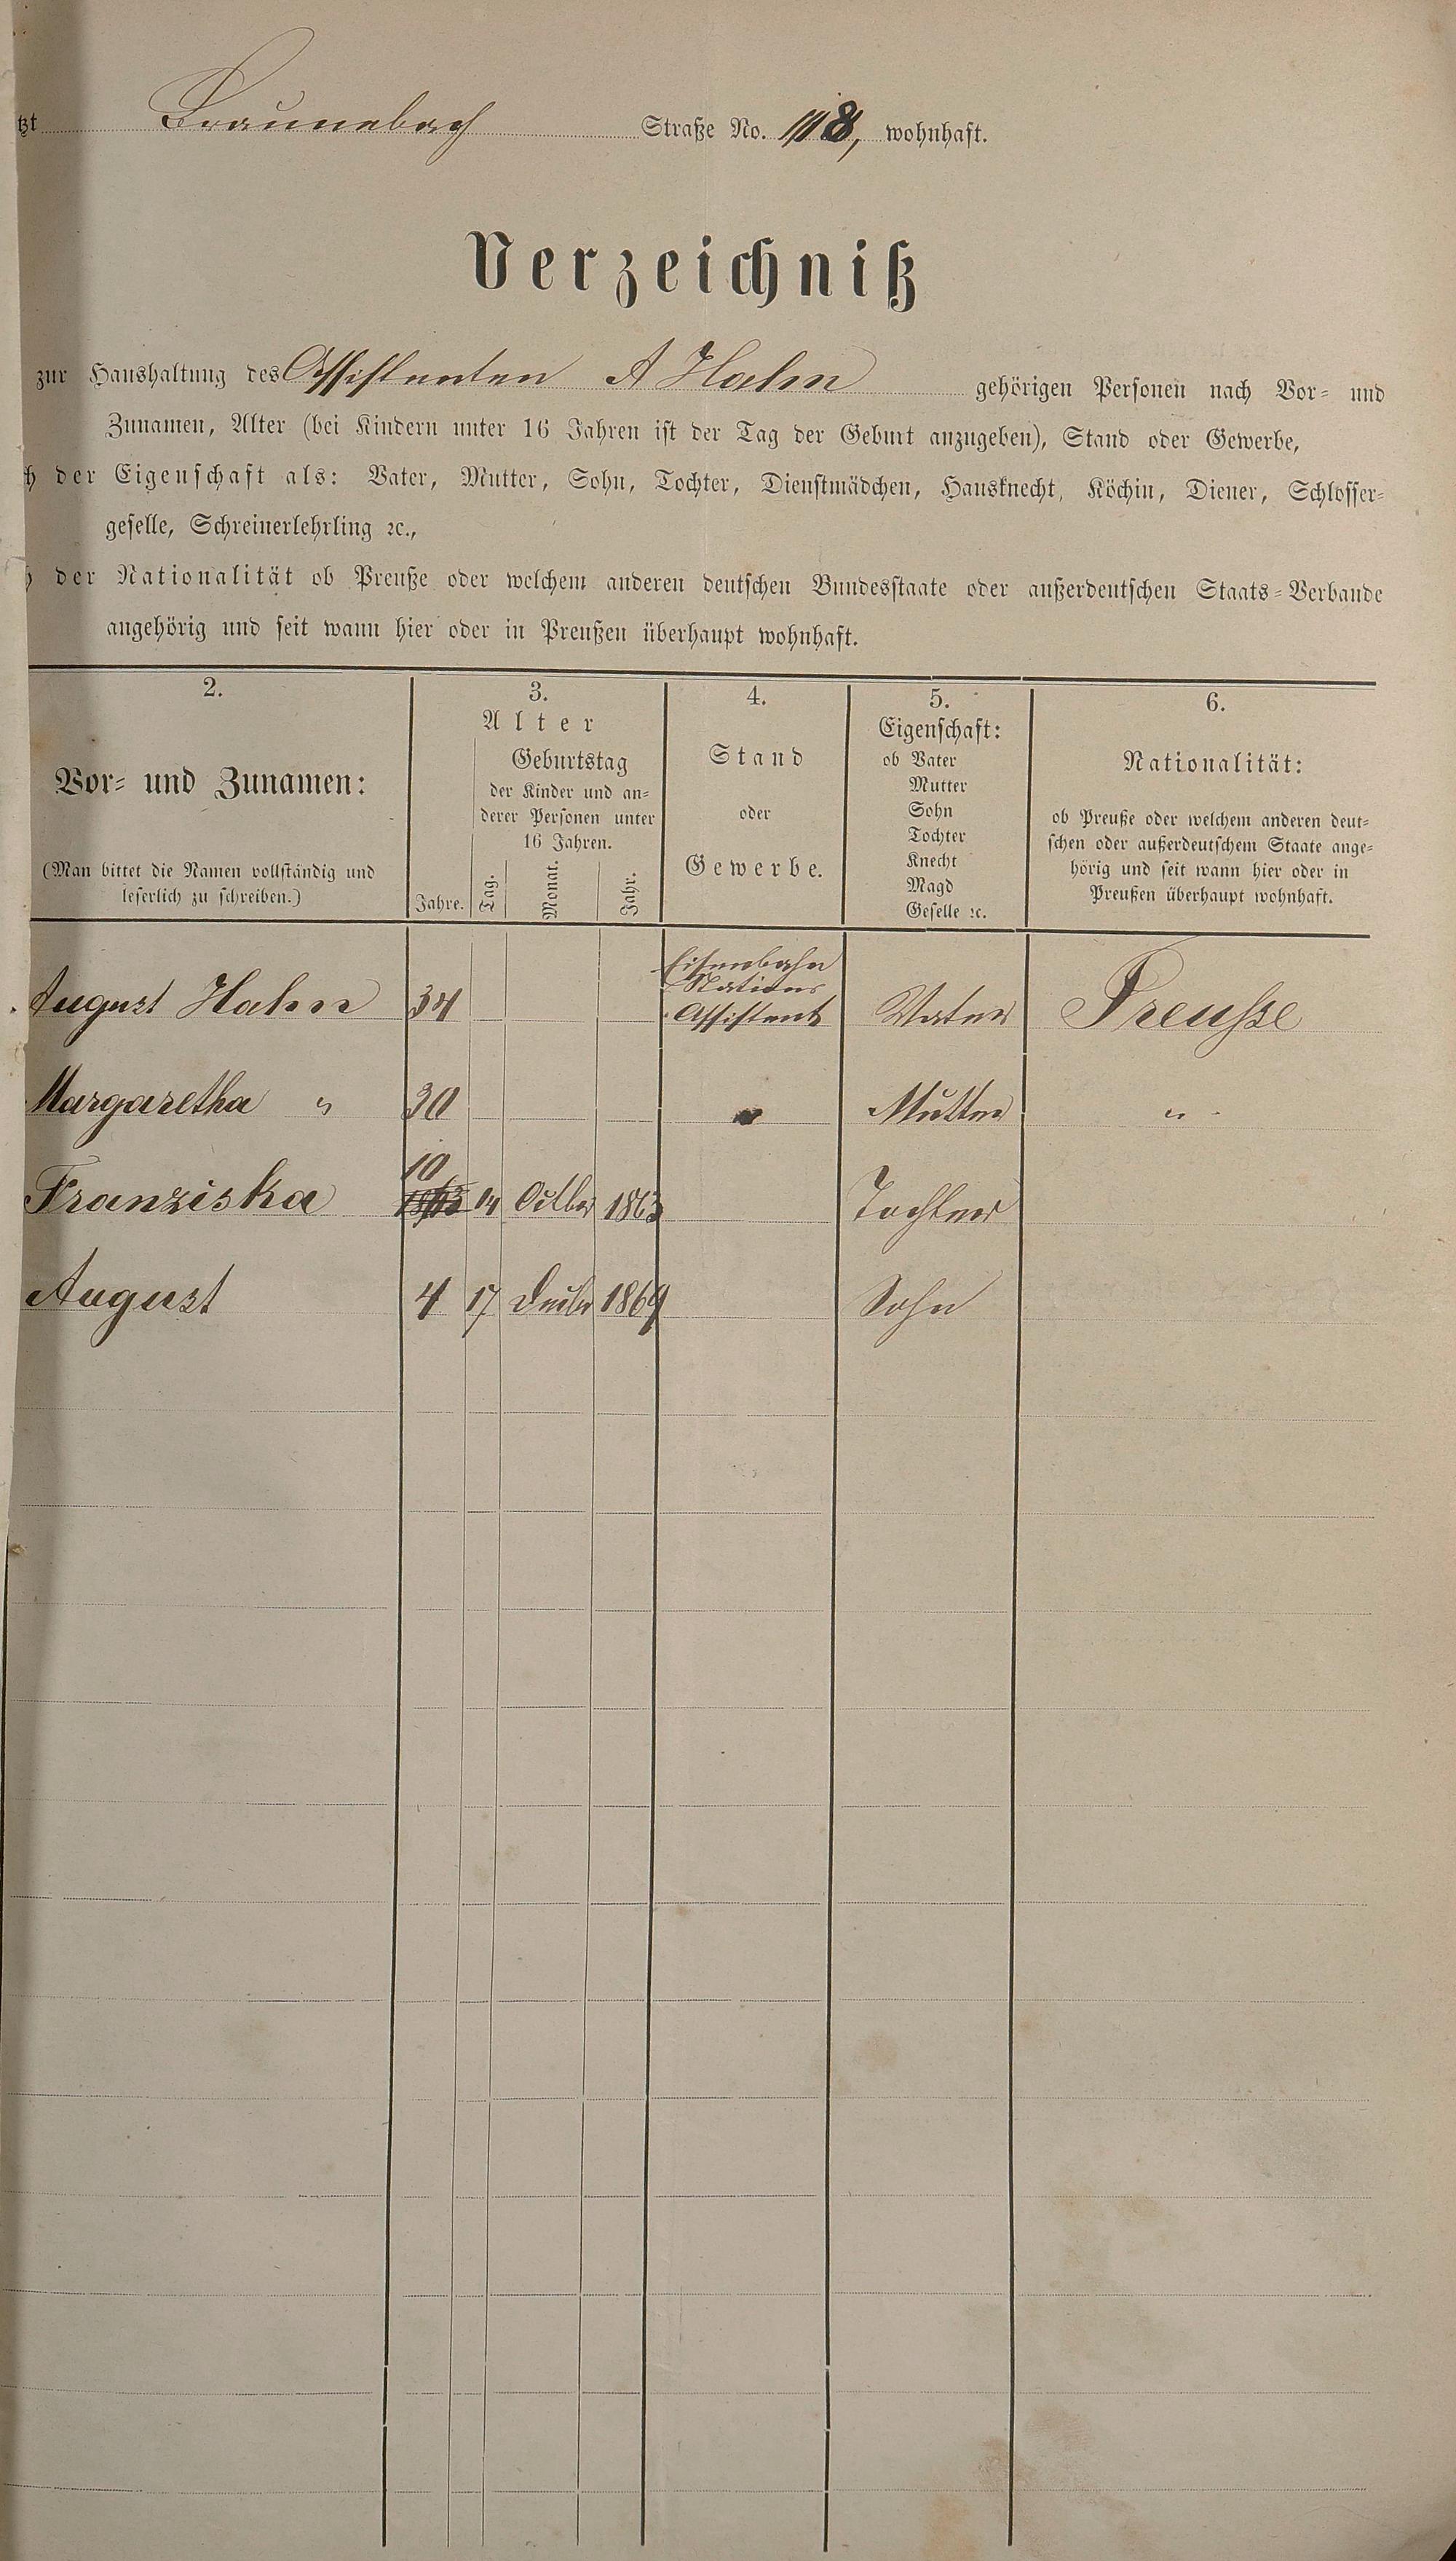 tzt Braunebach Straße No. 118, wohnhaft.
Verzeichniß
zur Haushaltung des Assistenten A Halm gehörigen Personen nach Vor- und
Zunamen, Alter (bei Kindern unter 16 Jahren ist der Tag der Geburt anzugeben), Stand oder Gewerbe,
h der Eigenschaft als: Vater, Mutter, Sohn, Tochter, Dienstmädchen, Hausknecht, Köchin, Diener, Schlosser-
geselle, Schreinerlehrling ꝛc.,
h der Nationalität ob Preuße oder welchem anderen deutschen Bundesstaate oder außerdeutschen Staats-Verbande
angehörig und seit wann hier oder in Preußen überhaupt wohnhaft.
2.
Vor- und Zunamen:
(Man bittet die Namen vollständig und
leserlich zu schreiben.)
3.
Alter
Jahre.
Geburtstag
der Kinder und an-
derer Personen unter
16 Jahren.
Tag. Monat. Jahr.
4.
Stand
oder
Gewerbe.
5.
Eigenschaft:
ob Vater
Mutter
Sohn
Tochter
Knecht
Magd
Geselle ꝛc.
6.
Nationalität:
ob Preuße oder welchem anderen deut-
schen oder außerdeutschem Staate ange-
hörig und seit wann hier oder in
Preußen überhaupt wohnhaft.
Eisenbahn
Stations
August Halm 34 Assistent Vater Preusse
Margaretha " 30 Mutter "
10
Franziska 14 Octber 1863 Tochter
August 4 17 Decbr 1869 Sohn